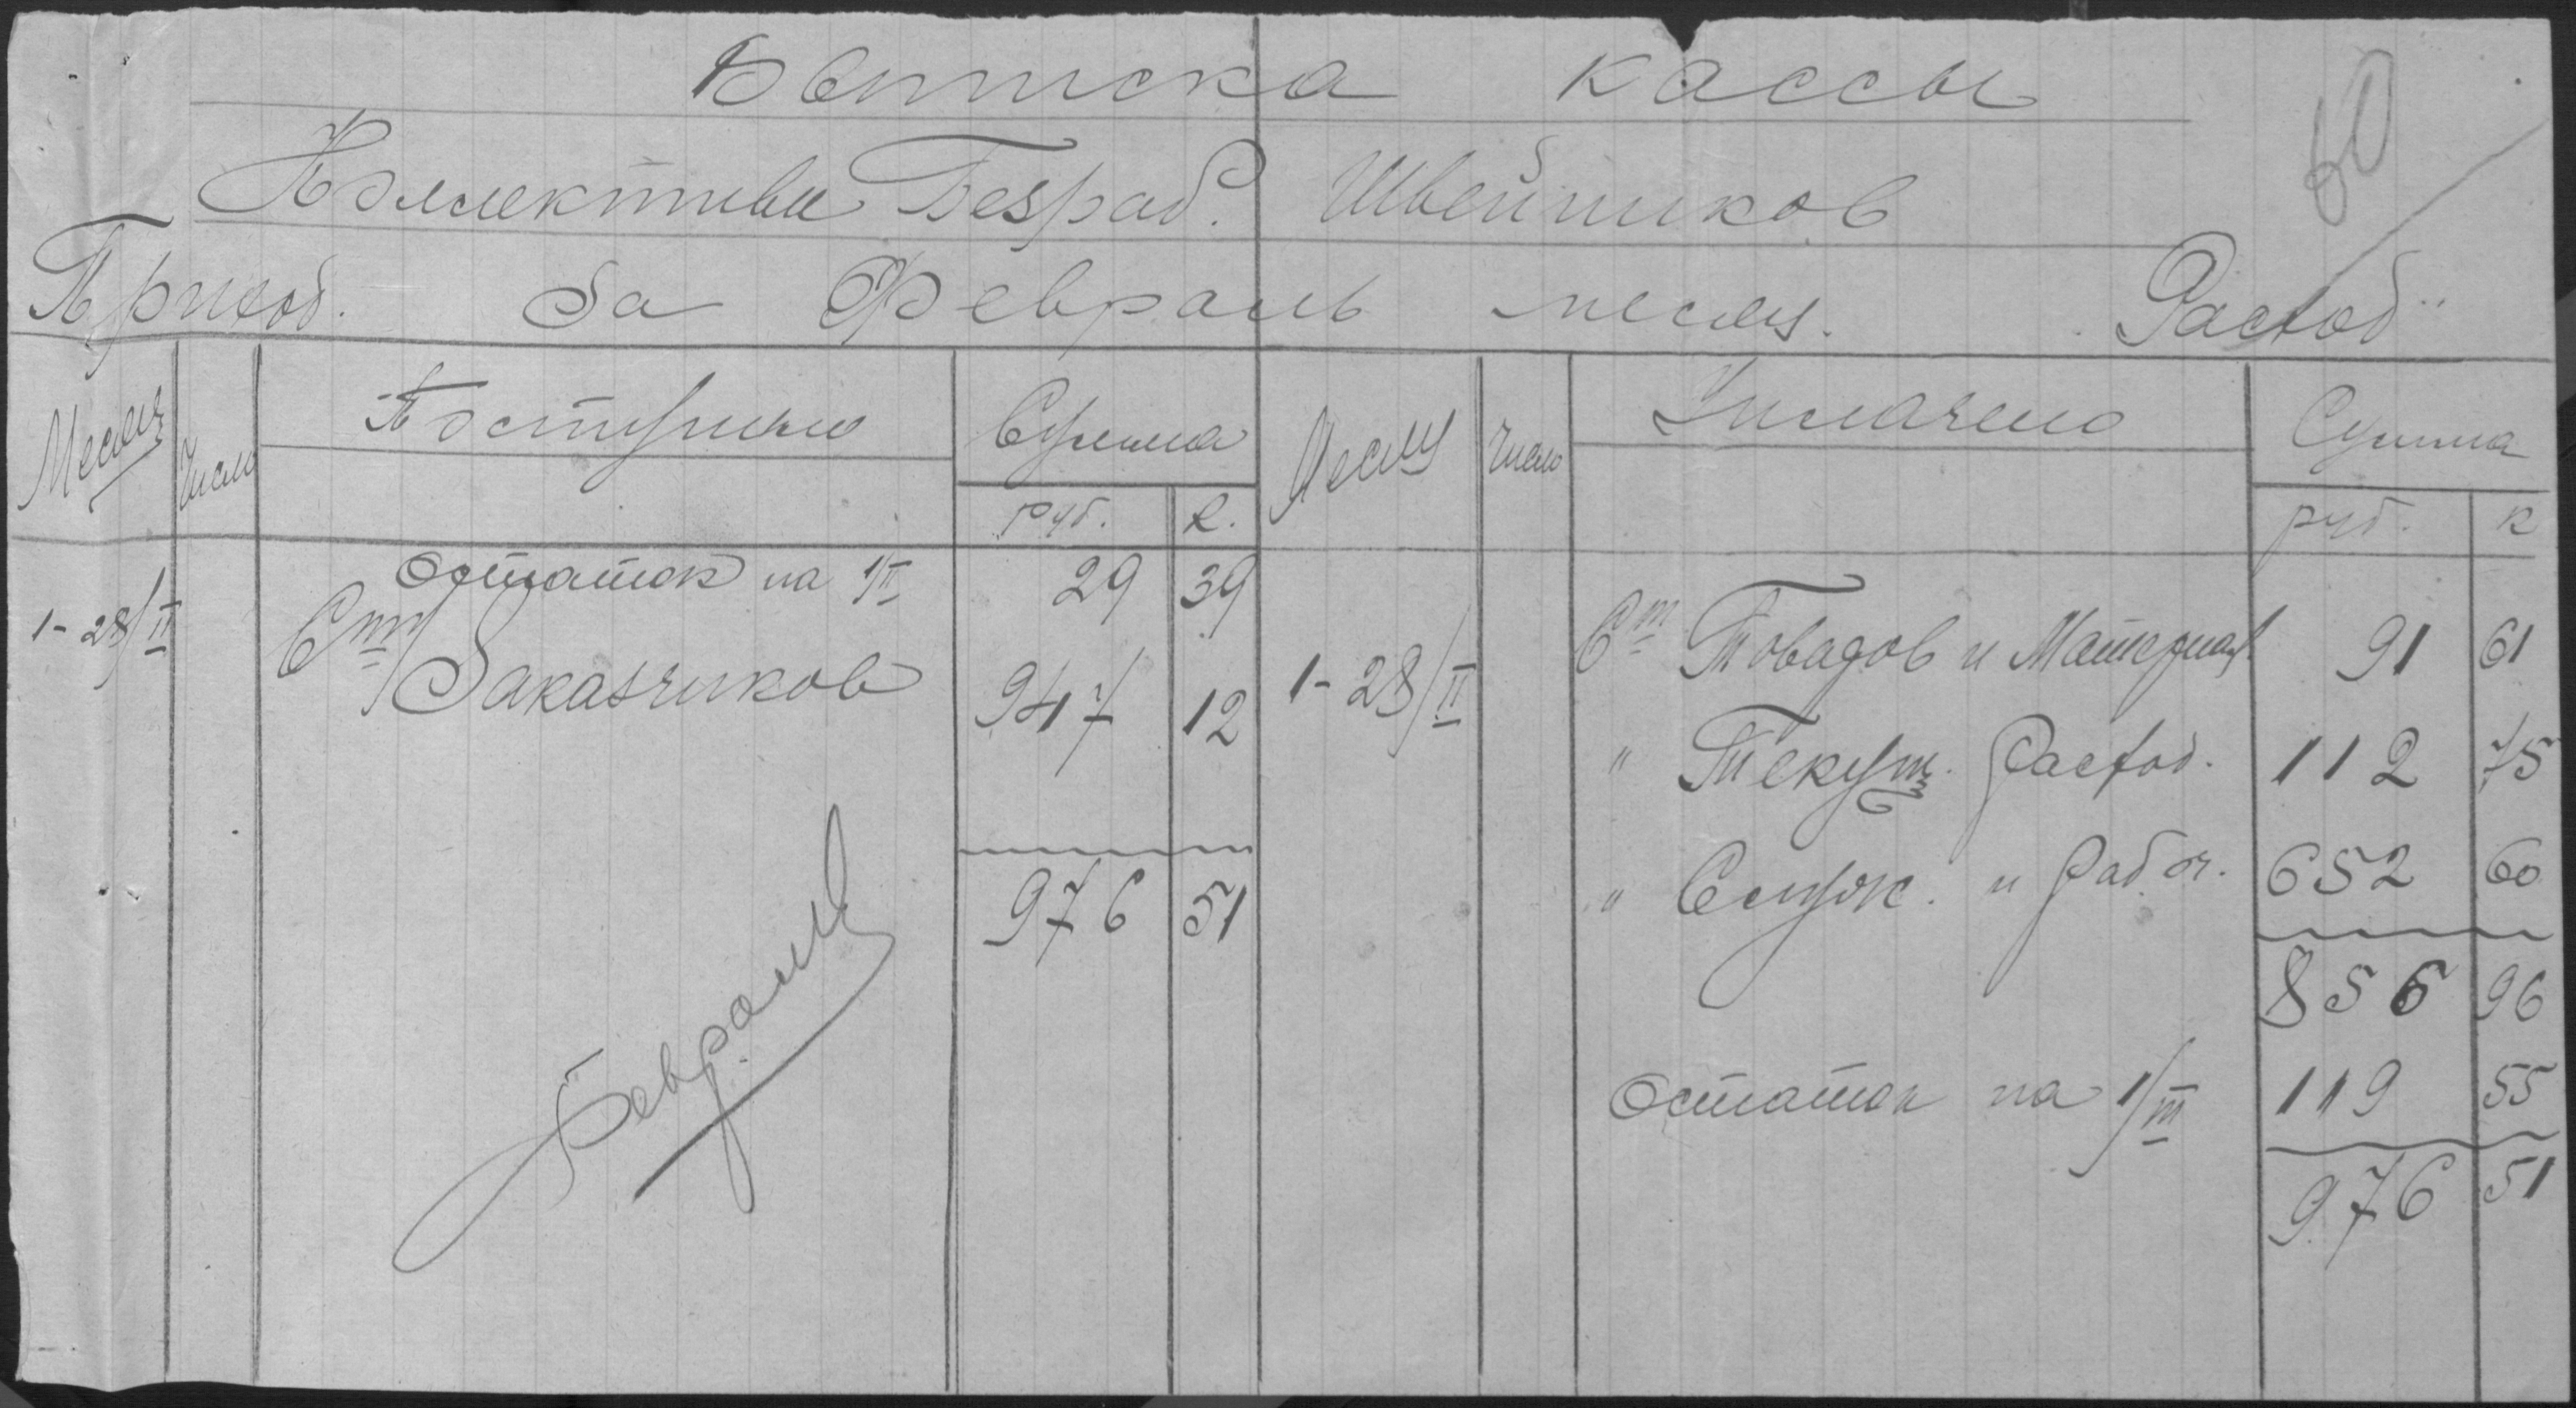 Выписка кассы
60
Коллектива Безраб. Швейников
Приход. За Февраль месяц. Расход
Месяц Число Поступило Сумма Месяц Число Уплачено Сумма
руб. к. руб. к
Остаток на 1/II 29 39
1-28/II Ст Заказчиков 947 12 1-28/II Ст Товаров и Материал 91 61
" Текущ. Расход. 112 75
" Служ. и Рабоч. 652 60
976 51
856 96
Остаток на 1/III 119 55
976 51
Февраль